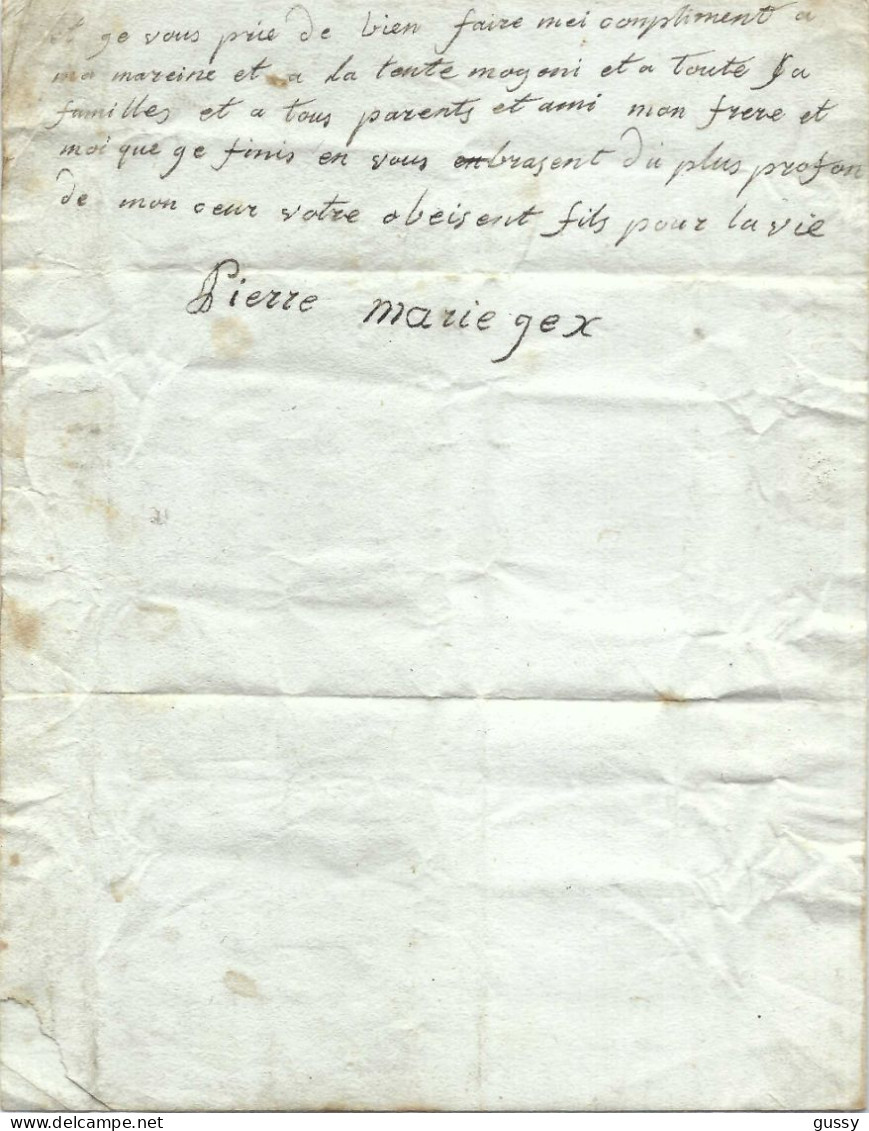 et ge vous prie de bien faire mei conpliment a
ma mareine et a la tente mogeni et a touté Sa
familles et a tous parents et ami mon frere et
moi que ge finis en vous enbrasent du plus profon
de mon ceur votre obeisent fils pour la vie
Pierre marie gex
delcampe.net
gussy